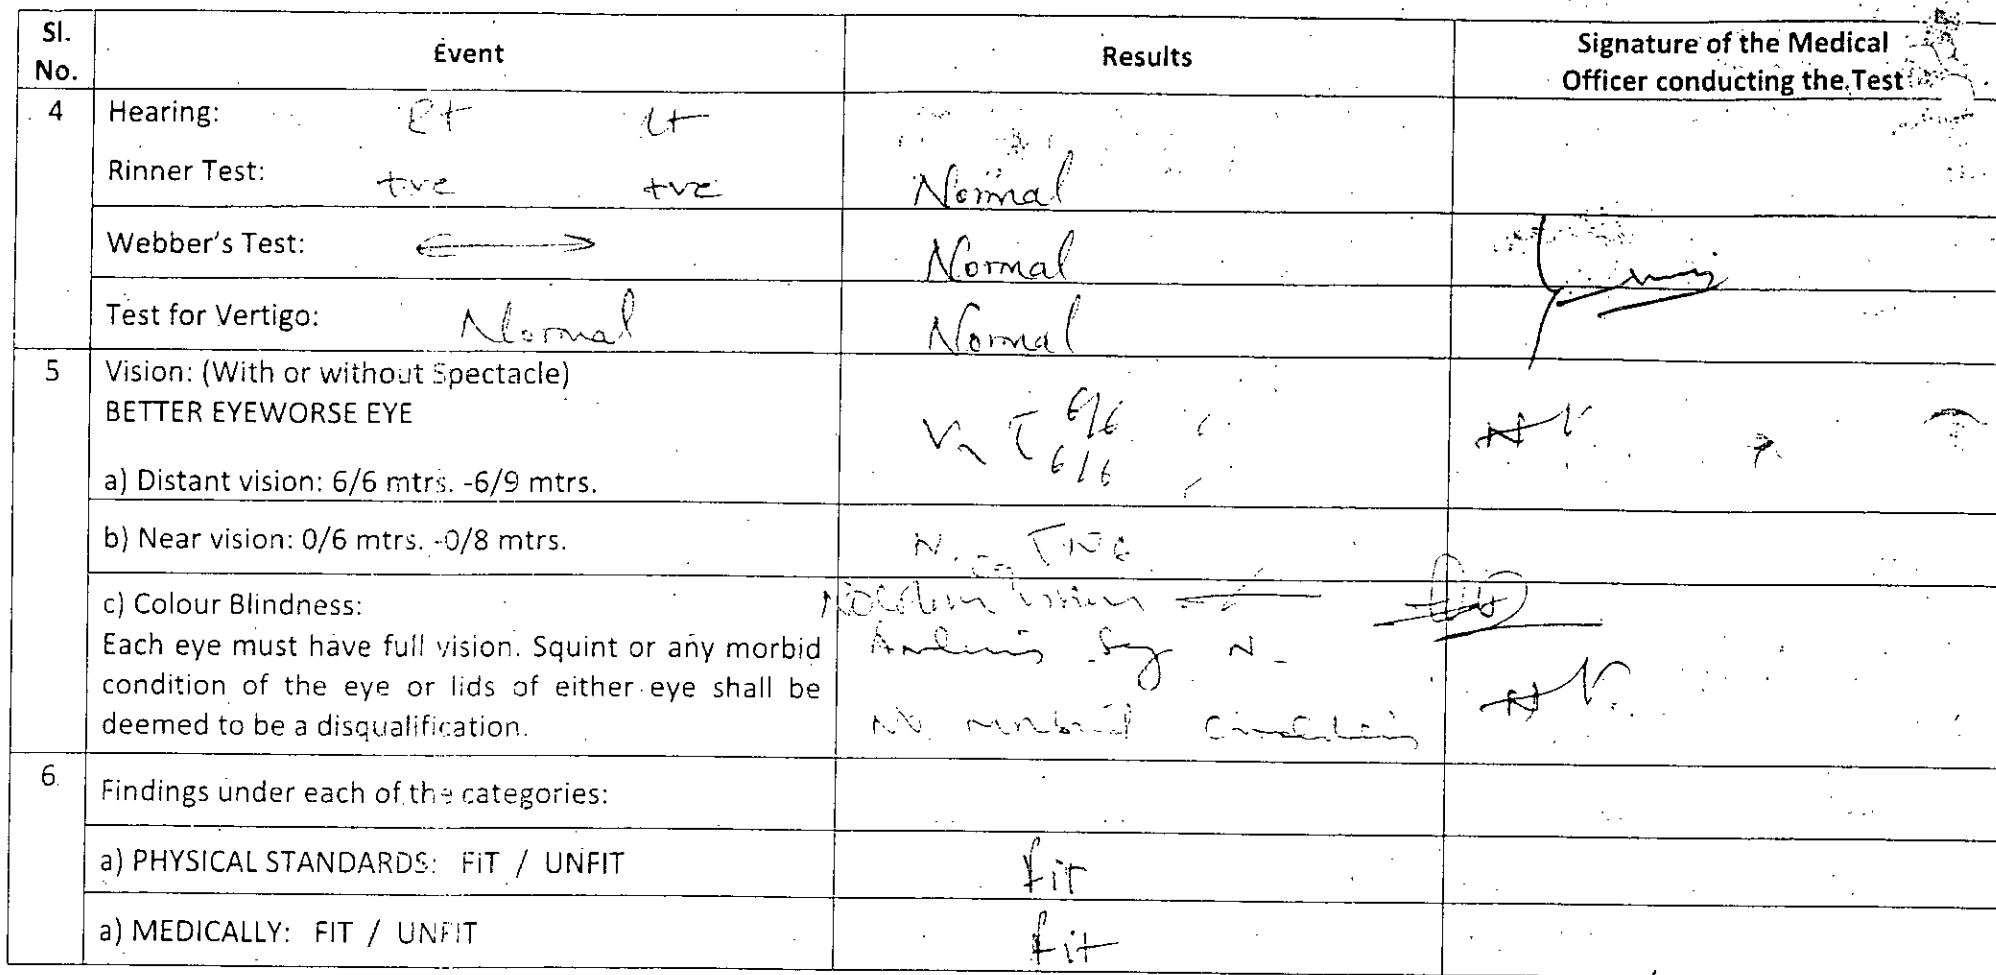 Sl. No. Event Results Signature of the Medical Officer conducting the Test
4 Hearing: Rt Lt
Rinner Test: +ve +ve Normal
Webber's Test: Normal
Test for Vertigo: Normal Normal
5 Vision: (With or without Spectacle)
BETTER EYEWORSE EYE
6/6
6/6
a) Distant vision: 6/6 mtrs. -6/9 mtrs.
b) Near vision: 0/6 mtrs. -0/8 mtrs.
c) Colour Blindness:
Each eye must have full vision. Squint or any morbid
condition of the eye or lids of either eye shall be
deemed to be a disqualification. No morbid
6. Findings under each of the categories:
a) PHYSICAL STANDARDS: FIT / UNFIT fit
a) MEDICALLY: FIT / UNFIT fit